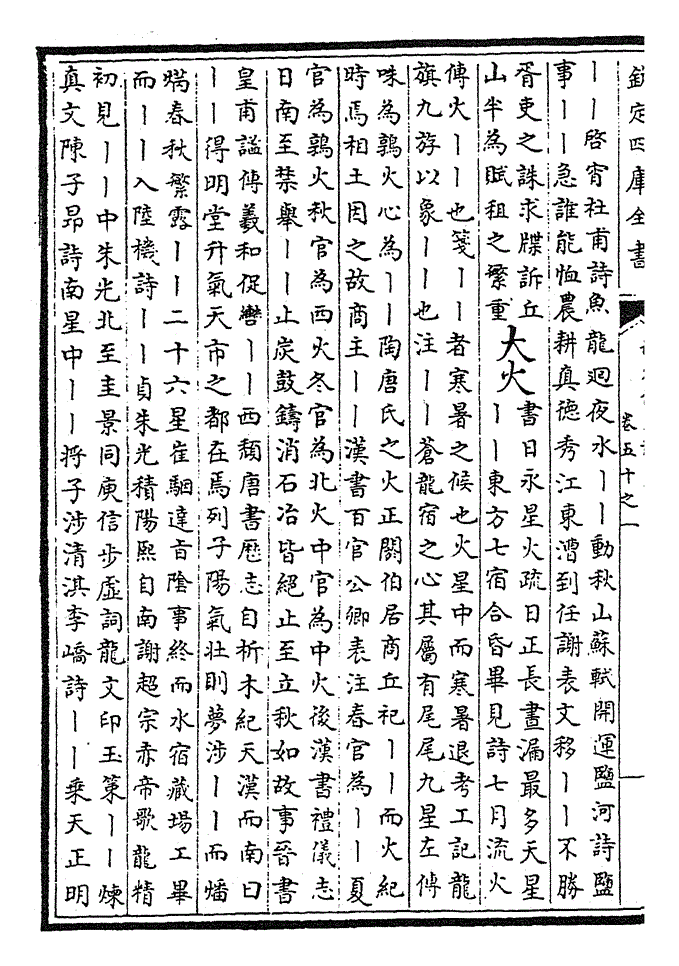 欽定四庫全書
卷五十之一
丨丨啓宵杜甫詩魚龍迴夜水丨丨動秋山蘇軾開運鹽河詩鹽
事丨丨急誰能恤農耕真徳秀江東漕到任謝表文移丨丨不勝
胥吏之誅求牒訴丘
山半為賦租之繁重
大火
書日永星火疏日正長晝漏最多天星
丨丨東方七宿合昏畢見詩七月流火
傳火丨丨也箋丨丨者寒暑之候也火星中而寒暑退考工記龍
旗九斿以象丨丨也注丨丨蒼龍宿之心其屬有尾尾九星左傳
咮為鶉火心為丨丨陶唐氏之火正閼伯居商丘祀丨丨而火紀
時焉相土因之故商主丨丨漢書百官公卿表注春官為丨丨夏
官為鶉火秋官為西火冬官為北火中官為中火後漢書禮儀志
日南至禁舉丨丨止炭鼓鑄消石冶皆絕止至立秋如故事晉書
皇甫謐傳羲和促轡丨丨西頽唐書厯志自析木紀天漢而南曰
丨丨得明堂升氣天市之都在焉列子陽氣壯則夢涉丨丨而燔
焫春秋繁露丨丨二十六星崔駰達旨陰事終而水宿藏場工畢
而丨丨入陸機詩丨丨貞朱光積陽熙自南謝超宗赤帝歌龍精
初見丨丨中朱光北至圭景同庾信步虛詞龍文印玉策丨丨煉
真文陳子昂詩南星中丨丨將子涉清淇李嶠詩丨丨乘天正明